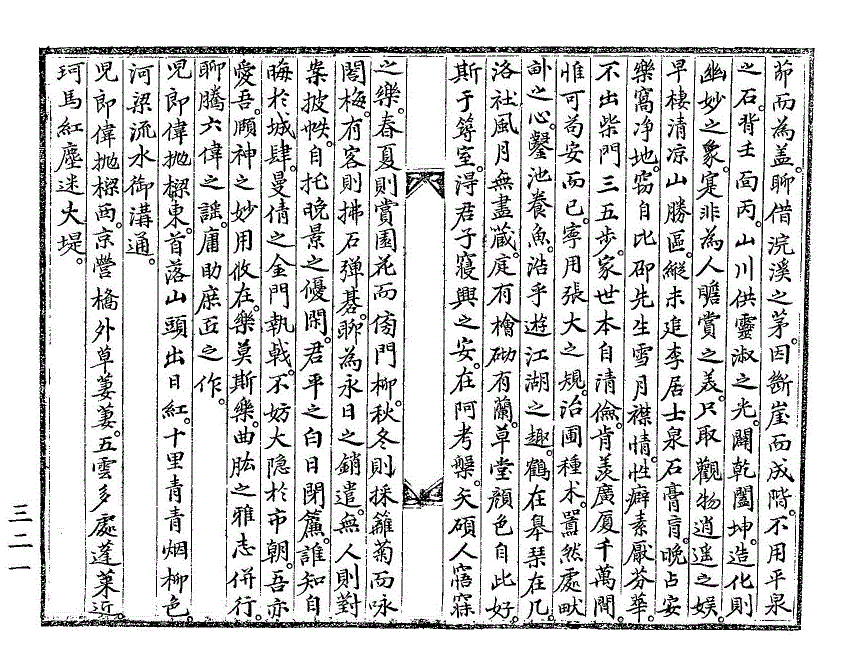 茆而為盖。聊借浣溪之茅。因斷崖而成階。不用平泉
之石。背壬面丙。山川供靈淑之光。闢乾闔坤。造化則
幽妙之象。寔非為人瞻賞之美。只取觀物逍遥之娱。
早棲清凉山勝區。縱未追李居士泉石膏肓。晚占安
樂窩净地。窃自比邵先生雪月襟情。性癖素厭芬華。
不出柴門三五步。家世本自清儉。肯羡廣厦千萬間。
惟可苟安而已。寧用張大之規。治圃種术。囂然處畎
畝之心。鑿池養魚。浩乎遊江湖之趣。鶴在皋琹在几。
洛社風月無盡蔵。庭有檜砌有蘭。草堂顔色自此好。
斯于簟室。淂君子寢興之安。在阿考槃。矢碩人寤寐
之樂。春夏則賞園花而傍門柳。秋冬則採籬菊而咏
閤梅。有客則拂石彈碁。聊為永日之銷遣。無人則對
案披帙。自托晚景之優閑。君平之白日閉簾。誰知自
晦於城肆。曼倩之金門執戟。不妨大隐於市朝。吾亦
愛吾。頤神之妙用攸在。樂莫斯樂。曲肱之雅志併行。
聊騰六偉之謡。庸助庶匠之作。
児郎偉抛樑東。首落山頭出日紅。十里青青烟柳色。
河梁流水御溝通。
児郎偉抛樑西。京營橋外草萋萋。五雲多處蓬莱近。
珂馬紅塵迷大堤。
三二一